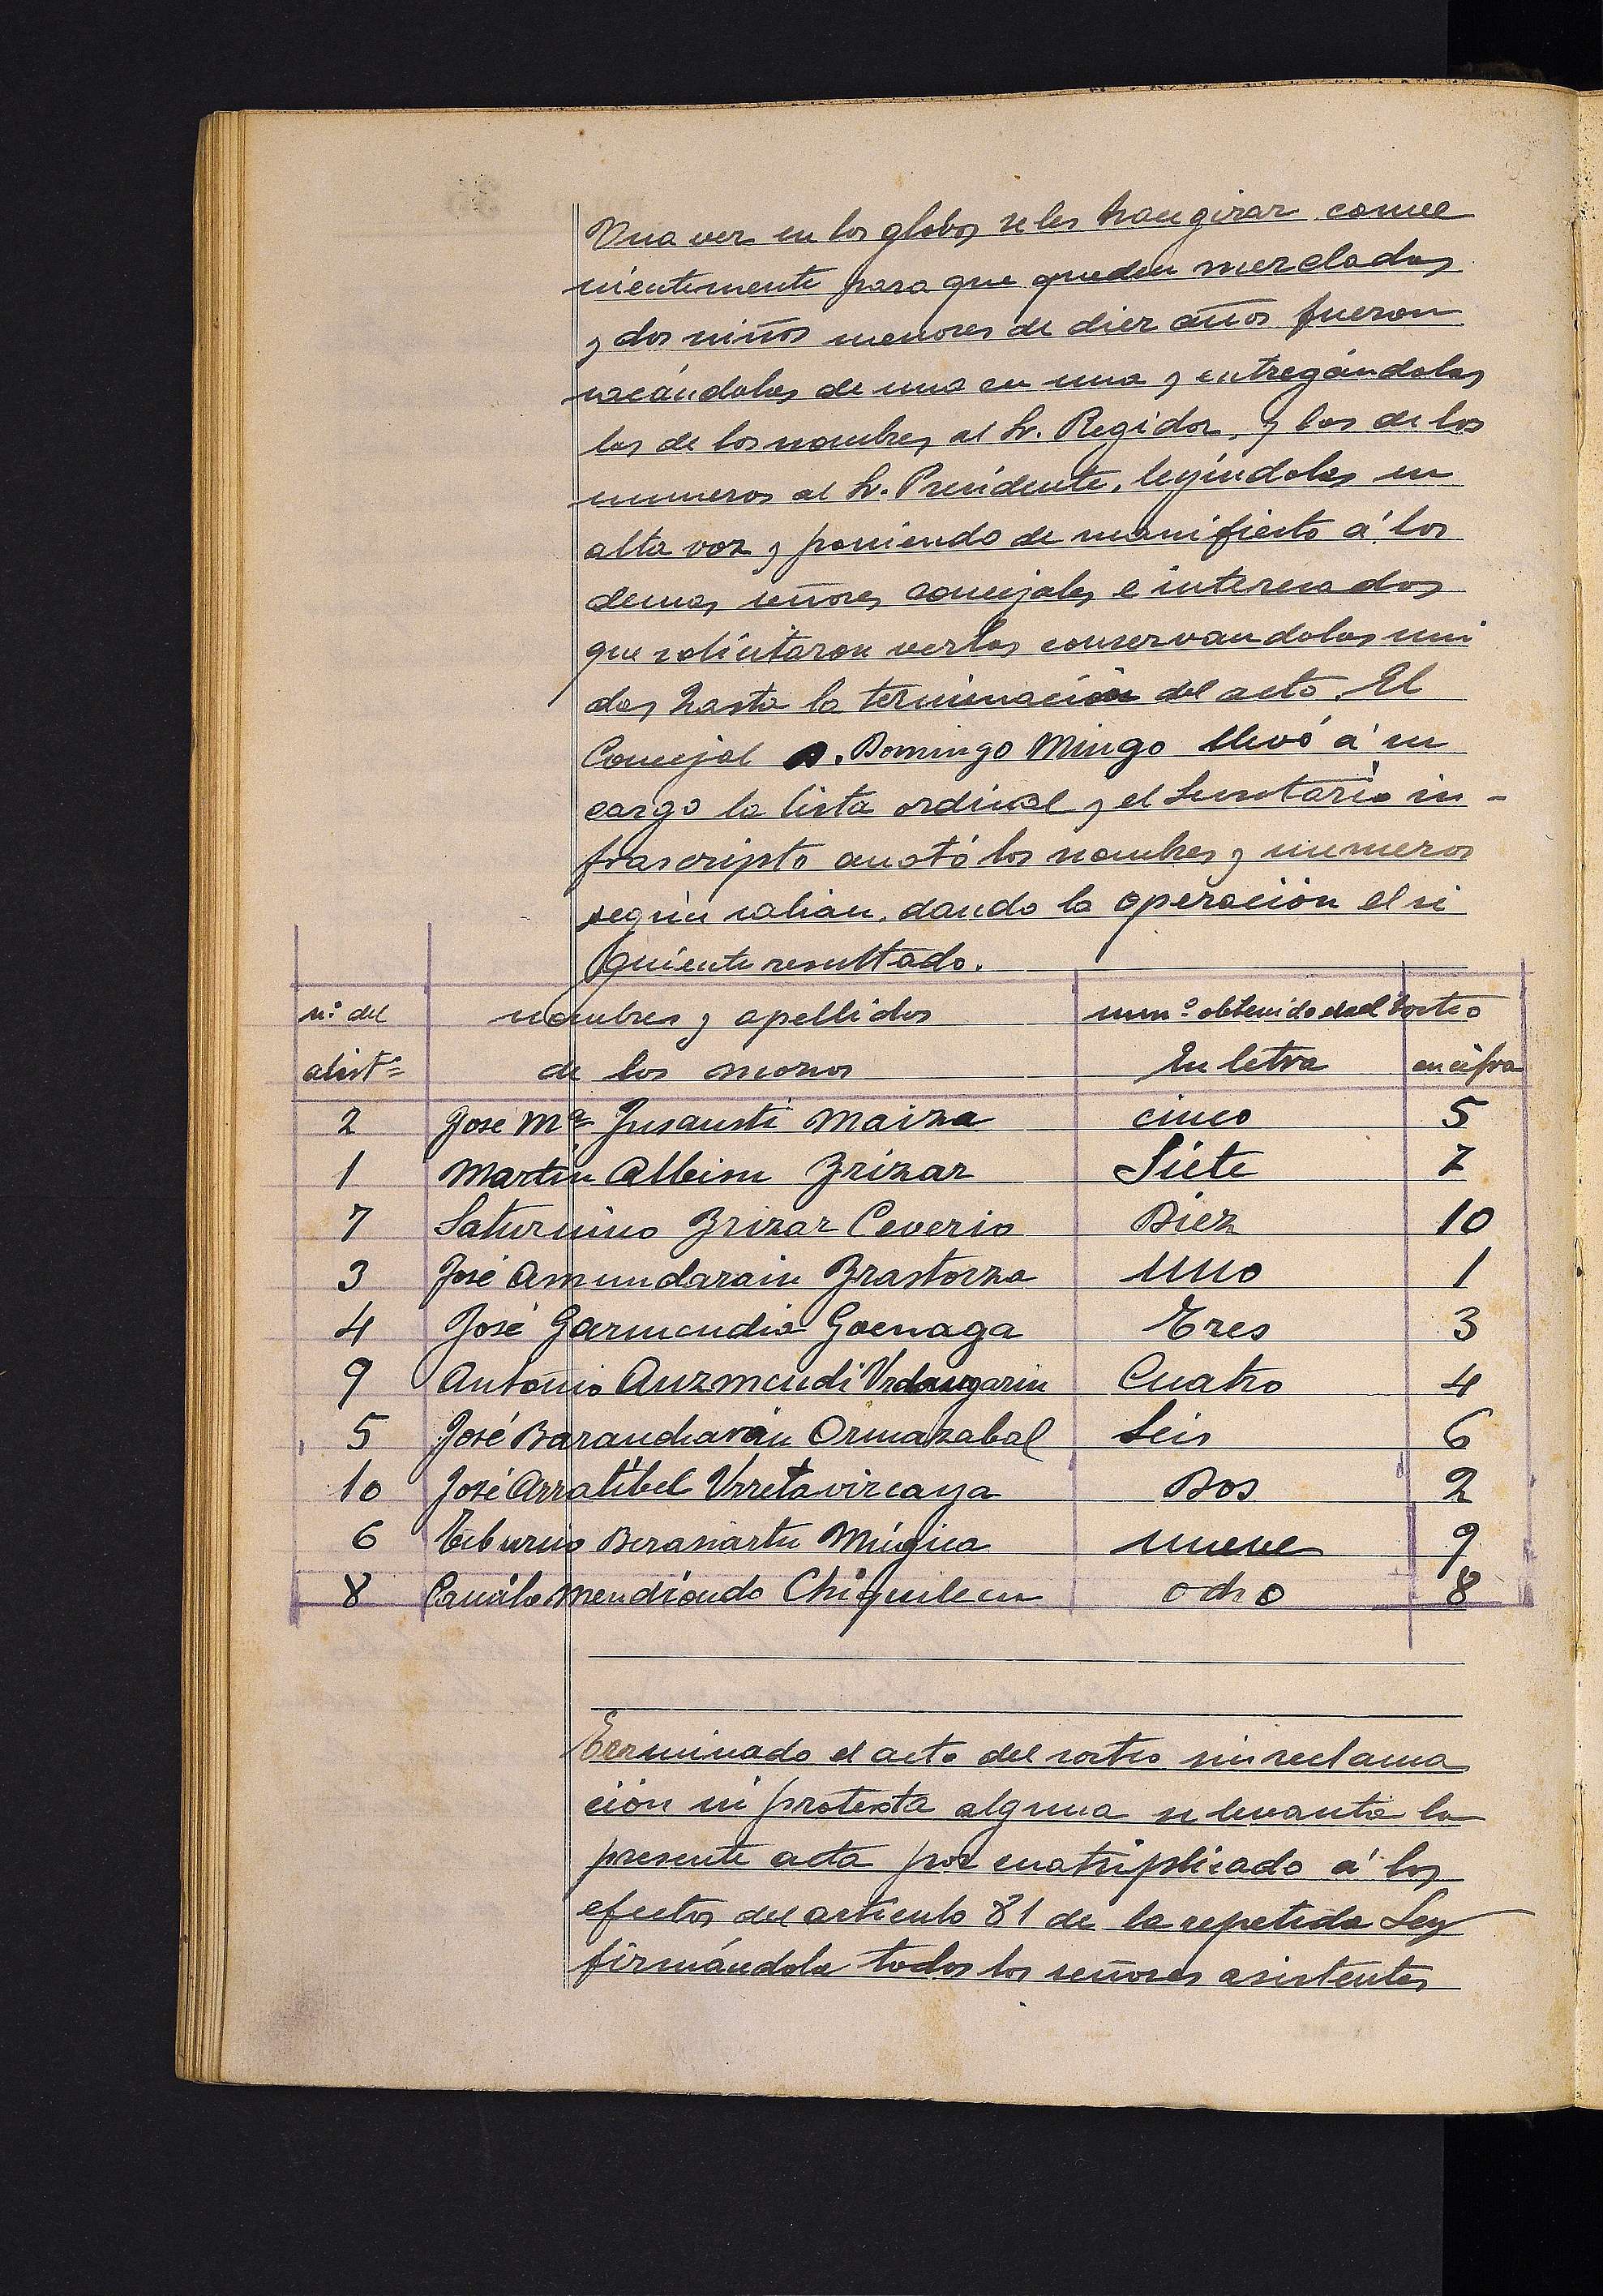 Una vez en los globos se les hace girar conve
nientemente para que queden mezcladas
y dos niños menores de diez años fueron
sacándolas de una en una y entregándolas
las de los nombres al Sr. Regidor, y las de los
numeros al Sr. Presidente, leyéndolas en
alta voz y poniendo de manifiesto á los
demas señores concejales e interesados
que solicitaron verlas conservandolas uni
das hasta la terminación del acto. El
Concejal D. Domingo Mingo llevó á su
cargo la lista ordinal y el Secretario in-
frascripto anotó los nombres y numeros
según salian, dando la operación el si
guiente resultado.
n.º del nombres y apellidos num.º obtenido en el sorteo
alistº de los mozos En letra en cifra
2 José Mª Insausti Maiza cinco 5
1 Martin Albisu Irizar Siete 7
7 Saturnino Irizar Ceverio Diez 10
3 José Amundarain Irastorza uno 1
4 José Garmendia Goenaga Tres 3
9 Antonio Auzmendi Urdangarin Cuatro 4
5 José Barandiarán Ormazabal Seis 6
10 José Arratibel Urretavizcaya Dos 2
6 Tiburcio Berasiartu Múgica nueve 9
8 Camilo Mendiondo Chiquilecu ocho 8
Terminado el acto del sorteo sin reclama
ción ni protesta alguna se levanta la
presente acta por cuatriplicado á los
efectos del articulo 81 de la repetida Ley
firmándola todos los señores asistentes